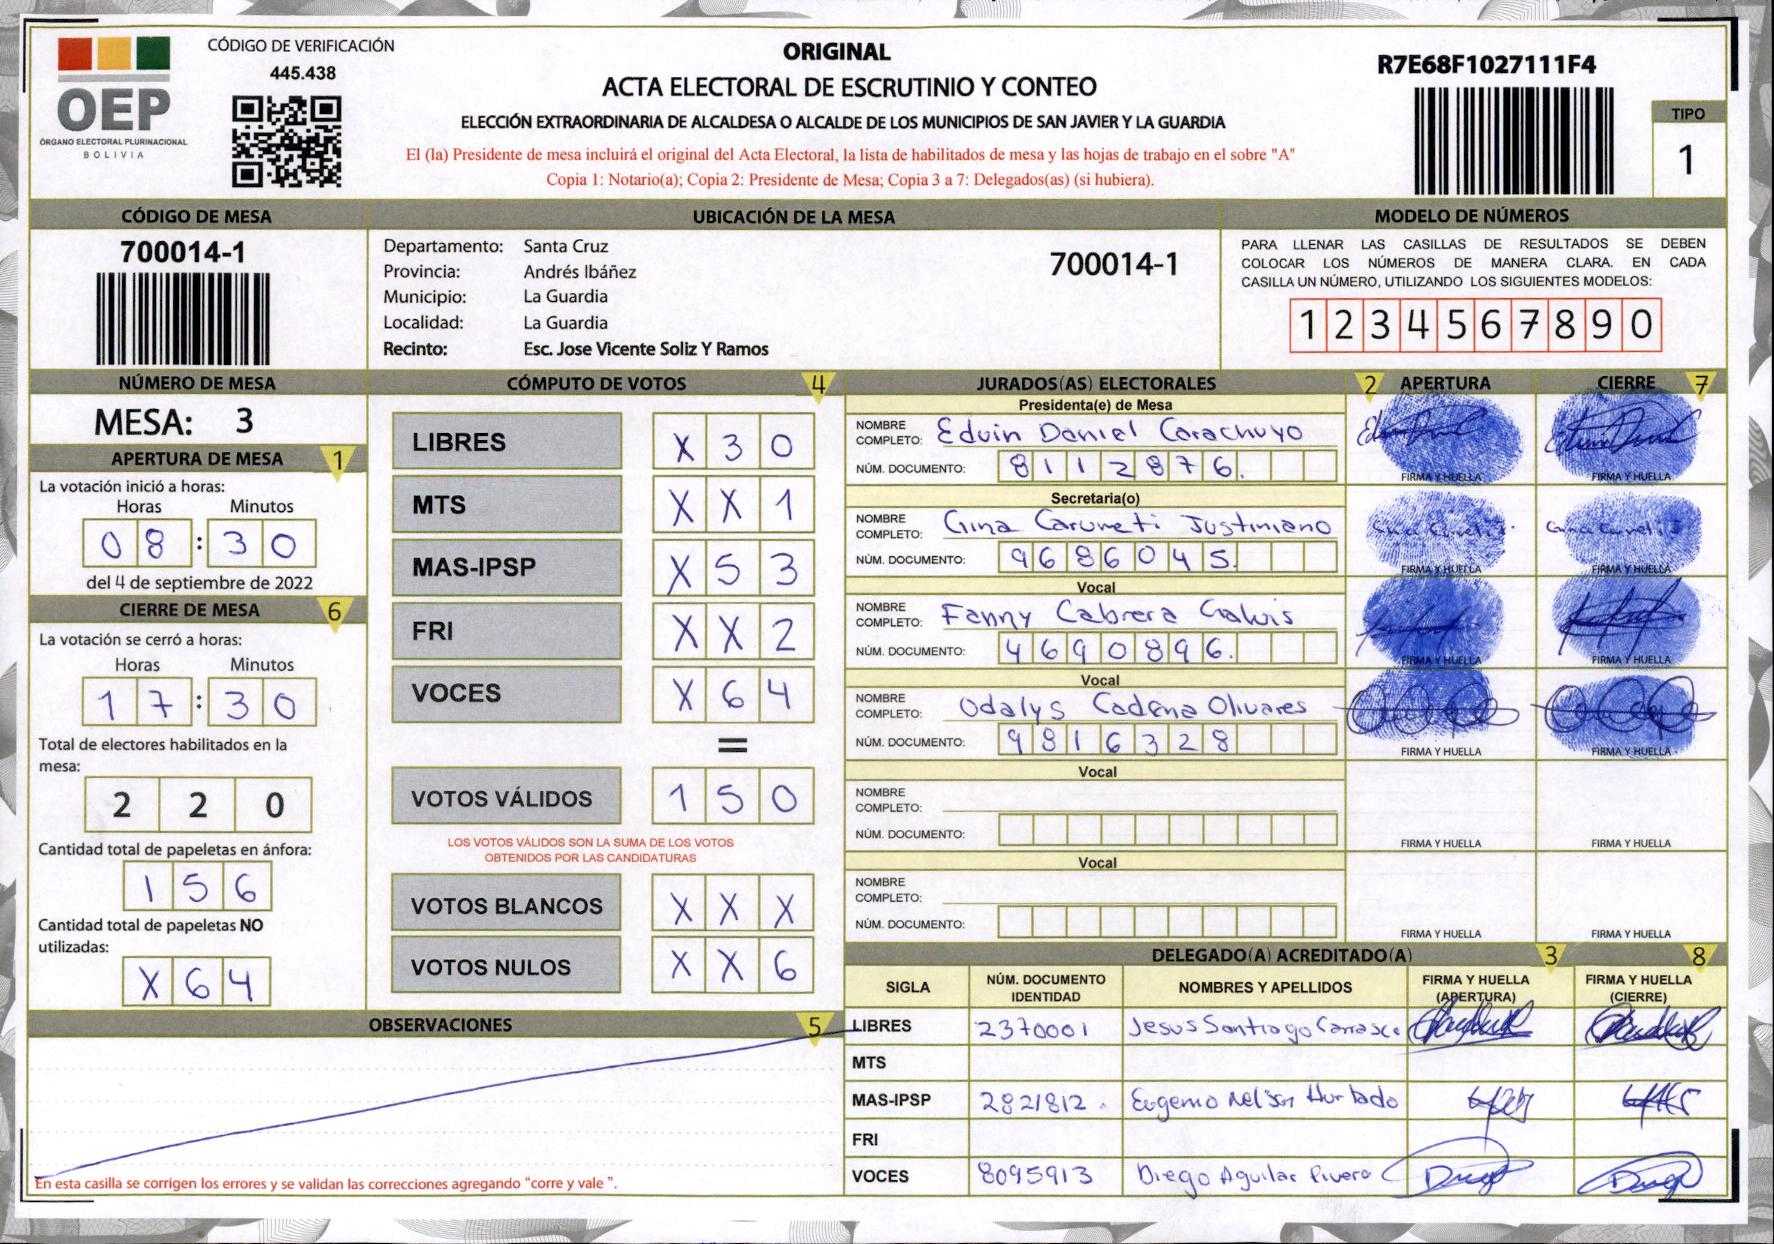 CÓDIGO DE VERIFICACIÓN
445.438
OEP
ÓRGANO ELECTORAL PLURINACIONAL
BOLIVIA
ORIGINAL
ACTA ELECTORAL DE ESCRUTINIO Y CONTEO
ELECCIÓN EXTRAORDINARIA DE ALCALDESA O ALCALDE DE LOS MUNICIPIOS DE SAN JAVIER Y LA GUARDIA
El (la) Presidente de mesa incluirá el original del Acta Electoral, la lista de habilitados de mesa y las hojas de trabajo en el sobre "A"
Copia 1: Notario(a); Copia 2: Presidente de Mesa; Copia 3 a 7: Delegados(as) (si hubiera).
R7E68F1027111F4
TIPO
1
CÓDIGO DE MESA
700014-1
UBICACIÓN DE LA MESA
Departamento: Santa Cruz
Provincia: Andrés Ibáñez
Municipio: La Guardia
Localidad: La Guardia
Recinto: Esc. Jose Vicente Soliz Y Ramos
700014-1
MODELO DE NÚMEROS
PARA LLENAR LAS CASILLAS DE RESULTADOS SE DEBEN
COLOCAR LOS NÚMEROS DE MANERA CLARA. EN CADA
CASILLA UN NÚMERO, UTILIZANDO LOS SIGUIENTES MODELOS:
1 2 3 4 5 6 7 8 9 0
NÚMERO DE MESA
MESA: 3
APERTURA DE MESA 1
La votación inició a horas:
Horas Minutos
0 8 : 3 0
del 4 de septiembre de 2022
CIERRE DE MESA 6
La votación se cerró a horas:
Horas Minutos
1 7 : 3 0
Total de electores habilitados en la
mesa:
2 2 0
Cantidad total de papeletas en ánfora:
1 5 6
Cantidad total de papeletas NO
utilizadas:
X 6 4
CÓMPUTO DE VOTOS 4
LIBRES X 3 0
MTS X X 1
MAS-IPSP X 5 3
FRI X X 2
VOCES X 6 4
=
VOTOS VÁLIDOS 1 5 0
LOS VOTOS VÁLIDOS SON LA SUMA DE LOS VOTOS
OBTENIDOS POR LAS CANDIDATURAS
VOTOS BLANCOS X X X
VOTOS NULOS X X 6
OBSERVACIONES 5
En esta casilla se corrigen los errores y se validan las correcciones agregando "corre y vale ".
JURADOS(AS) ELECTORALES 2 APERTURA CIERRE 7
Presidenta(e) de Mesa
NOMBRE
COMPLETO: Edvin Daniel Carachuyo
NÚM. DOCUMENTO: 8 1 1 2 8 7 6.
FIRMA Y HUELLA FIRMA Y HUELLA
Secretaria(o)
NOMBRE
COMPLETO: Gina Caruneti Justiniano
NÚM. DOCUMENTO: 9 6 8 6 0 4 5.
FIRMA Y HUELLA FIRMA Y HUELLA
Vocal
NOMBRE
COMPLETO: Fanny Cabrera Galvis
NÚM. DOCUMENTO: 4 6 9 0 8 9 6.
FIRMA Y HUELLA FIRMA Y HUELLA
Vocal
NOMBRE
COMPLETO: Odalys Cadena Olivares
NÚM. DOCUMENTO: 9 8 1 6 3 2 8
FIRMA Y HUELLA FIRMA Y HUELLA
Vocal
NOMBRE
COMPLETO:
NÚM. DOCUMENTO:
FIRMA Y HUELLA FIRMA Y HUELLA
Vocal
NOMBRE
COMPLETO:
NÚM. DOCUMENTO:
FIRMA Y HUELLA FIRMA Y HUELLA
DELEGADO(A) ACREDITADO(A) 3 8
SIGLA
NÚM. DOCUMENTO
IDENTIDAD
NOMBRES Y APELLIDOS
FIRMA Y HUELLA
(APERTURA)
FIRMA Y HUELLA
(CIERRE)
LIBRES 2370001 Jesus Santiago Carrasco
MTS
MAS-IPSP 2821812. Eugenio Nelson Hurtado
FRI
VOCES 8095913 Diego Aguilar Rivero